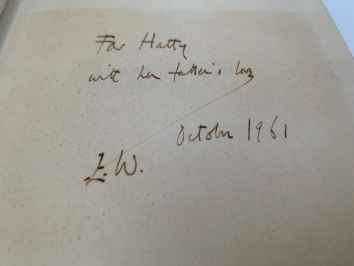 For Hatty
with her father's love
October 1961
E.W.